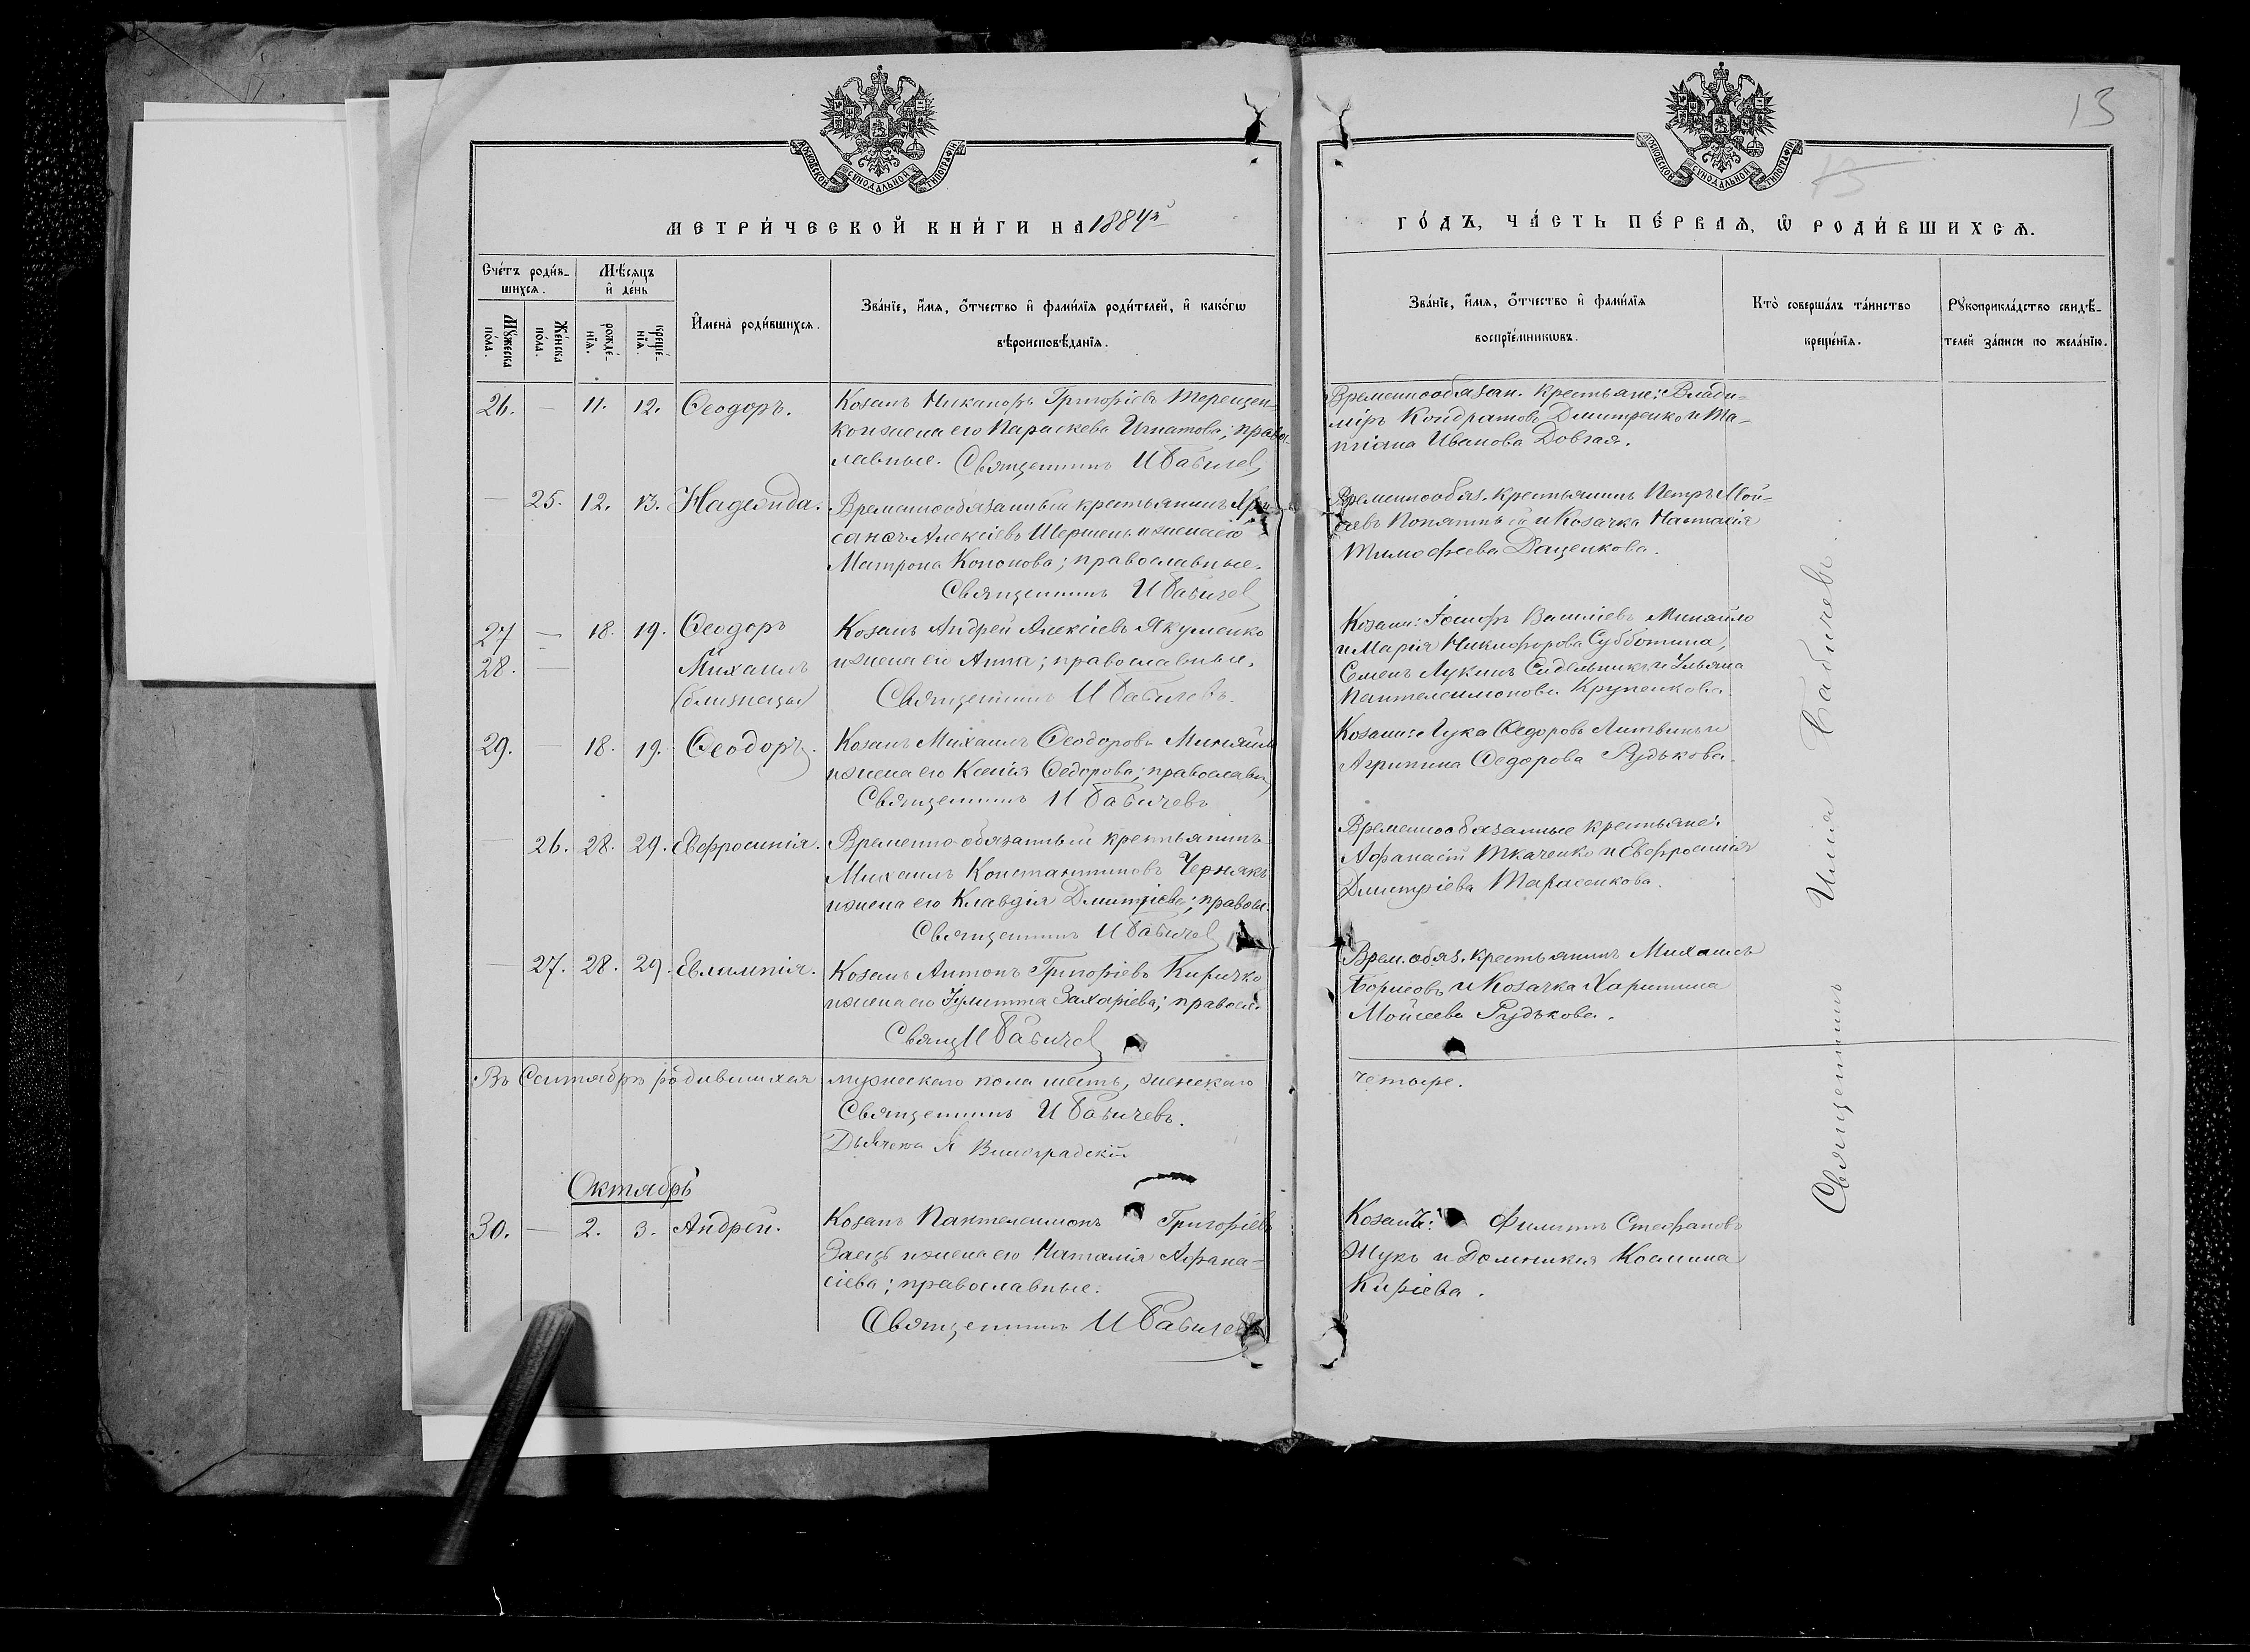 МОСКОВСКОЙ СѴНОДАЛЬНОЙ ТИПОГРАФІИ
МЕТРИ́ЧЕСКОЙ КНИ́ГИ НА 1884й
Сче́тъ роди́в-
шихсѧ.
Мѣ́сѧцъ
и҆ де́нь
Мꙋ́жеска
по́ла.
Же́нска
по́ла.
рожде́-
нїѧ.
креще́-
нїѧ.
И҆мена̀ роди́вшихсѧ.
Зва́нїе, и҆́мѧ, о҆́тчество и҆ фами́лїѧ роди́телей, и҆ како́гѡ
вѣроисповѣ́данїѧ.
26. — 11. 12. Ѳеодоръ. Козакъ Никаноръ Григоріевъ Терещен-
ко и жена его Параскева Игнатова; правос-
лавные. Священникъ И Бабичев
— 25. 12. 13. Надежда. Временнообязанный крестьянинъ Хри-
санѳъ Алексіевъ Шершень и жена его
Матрона Кононова; православные.
Священникъ И Бабичев
27 — 18. 19. Ѳеодоръ Козакъ Андрей Алексіевъ Якуменко
28. — Михаилъ и жена его Анна; православные.
(близнецы) Священникъ И Бабичевъ.
29. — 18. 19. Ѳеодоръ. Козакъ Михаилъ Ѳеодоровъ Миняйло
и жена его Ксенія Ѳедорова; православн
Священникъ И Бабичевъ
— 26. 28. 29. Евфросинія. Временно-обязанный крестьянинъ
Михаилъ Константиновъ Чернякъ
и жена его Клавдія Дмитріева; правосл.
Священникъ И Бабичев
— 27. 28. 29. Евлампія. Козакъ Антонъ Григоріевъ Киричко
и жена его Іулитта Захаріева; правосл.
Свящ И Бабичев
Въ Сентябрѣ родившихся мужескаго пола шесть, женскаго
Священникъ И Бабичевъ.
Дьячекъ Я Виноградскій
Октябрь
30. — 2. 3. Андрей. Козакъ Пантелеимонъ Григоріевъ
Заецъ и жена его Наталія Афана-
сіева; православные.
Священникъ И Бабичевъ
13
13
МОСКОВСКОЙ СѴНОДАЛЬНОЙ ТИПОГРАФІИ
ГО́ДЪ, ЧА́СТЬ ПЕ́РВАѦ, Ѽ РОДИ́ВШИХСѦ.
Зва́нїе, и҆́мѧ, о҆́тчество и҆ фами́лїѧ
воспрїе́мникѡвъ.
Кто̀ соверша́лъ та́инство
креще́нїѧ.
Рꙋкоприкла́дство свидѣ́-
телей за́писи по жела́нїю.
Временнообязан. крестьяне: Влади-
міръ Кондратовъ Дмитренко и Та-
тіана Иванова Довгая.
Временнообяз. крестьянинъ Петръ Мой-
сеевъ Попятный и Козачка Настасія
Тимофеева Даценкова.
Козаки: Іосифъ Василіевъ Миняйло
и Марія Никифорова Субботина,
Семенъ Лукинъ Сидельникъ и Ульяна
Пантелеимонова Крупенкова.
Козаки: Лука Ѳедоровъ Литвинъ и
Агрипина Ѳедорова Рудькова.
Временнообязанные крестьяне:
Афанасій Ткаченко и Евфросинія
Дмитріева Тарасенкова.
Врем. обяз. крестьянинъ Михаилъ
Борисовъ и Козачка Харитина
Мойсеева Рудькова.
четыре.
Козаки: Филиппъ Стефановъ
Жукъ и Домникія Космина
Киріева.
Священникъ Илія Бабичевъ.